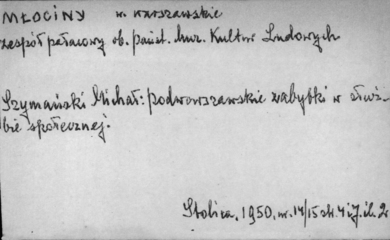 MŁOCINY w. warszawskie
zespół pałacowy ob. państ. muz. Kultur Ludowych
Szymański Michał: podwarszawskie zabytki w służ-
bie społecznej.
Stolica, 1950, nr. 14/15 str. 4 i 7, il. 2